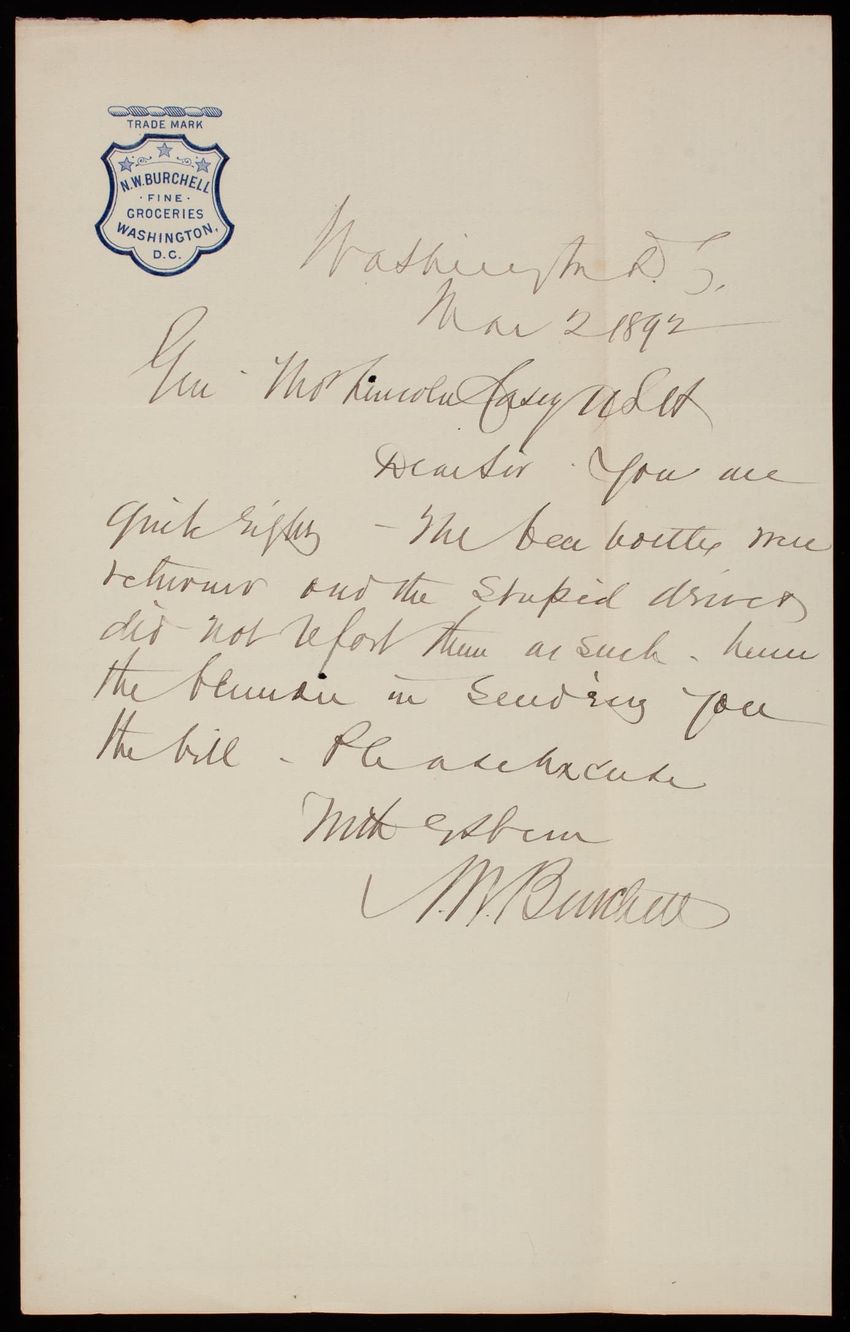 TRADE MARK
N.W. BURCHELL
· FINE ·
GROCERIES
WASHINGTON,
D.C.
Washington D.C.
Mar 2 1892
Gen Thos Lincoln Casey USA
Dear Sir You are
quite right - The beer bottles were
returned and the stupid driver
did not report them as such - hence
the blunder in sending you
the bill - Please excuse
With esteem
N.W. Burchell